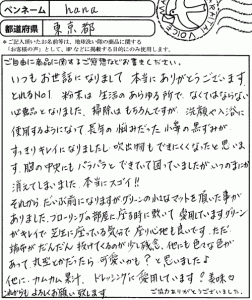 ペンネーム hana
都道府県 東京都
※ご記入頂いたお名前等は、地球洗い隊の商品に関する
「お客様の声」として、HPなどに掲載する目的にのみ使用します。
ご自由に商品に関するご感想などお書きください。
いつもお世話になりまして本当にありがとうございます
とれるNO.1 粉末は生活のあらゆる所で、なくてはならない
必需品となりました。掃除はもちろんですが、洗顔や入浴に
使用するようになって長年の悩みだった小鼻の黒ずみが
すっきりキレイになりましたし吹出物もできにくくなったと思いま
す。胸の中央にもパラパラとできていて困っていましたがいつのまにか
消えてしまいました。本当にスゴイ!!
それから だいぶ前になりますがグリーンの小さなマットを頂いた事が
ありました。フローリングの部屋に座る時に敷いて愛用していますグリーン
がキレイで芝生に座っている気分で座り心地も良いです。ただ
端布がだんだん抜けてくるのが少し残念、他にも色々な色が
あって、丸型とかだったら可愛いかも?と思いましたよ
他に、カムカム果汁、ドレッシングも愛用しています! 美味
これからもよろしくお願い致します
ご協力ありがとうございました。